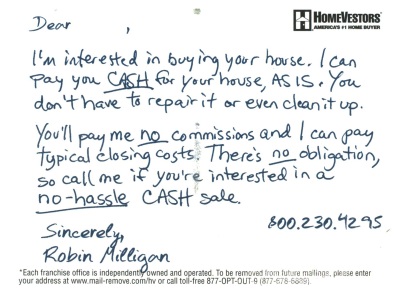 Dear ,
HOMEVESTORS
AMERICA'S #1 HOME BUYER
I'm interested in buying your house. I can
pay you CASH for your house, AS IS. You
don't have to repair it or even clean it up.
You'll pay me no commissions and I can pay
typical closing costs. There's no obligation,
so call me if you're interested in a
no-hassle CASH sale.
800.230.4295
Sincerely,
Robin Milligan
*Each franchise office is independently owned and operated. To be removed from future mailings, please enter
your address at www.mail-remove.com/hv or call toll-free 877-OPT-OUT-9 (877-678-6889).